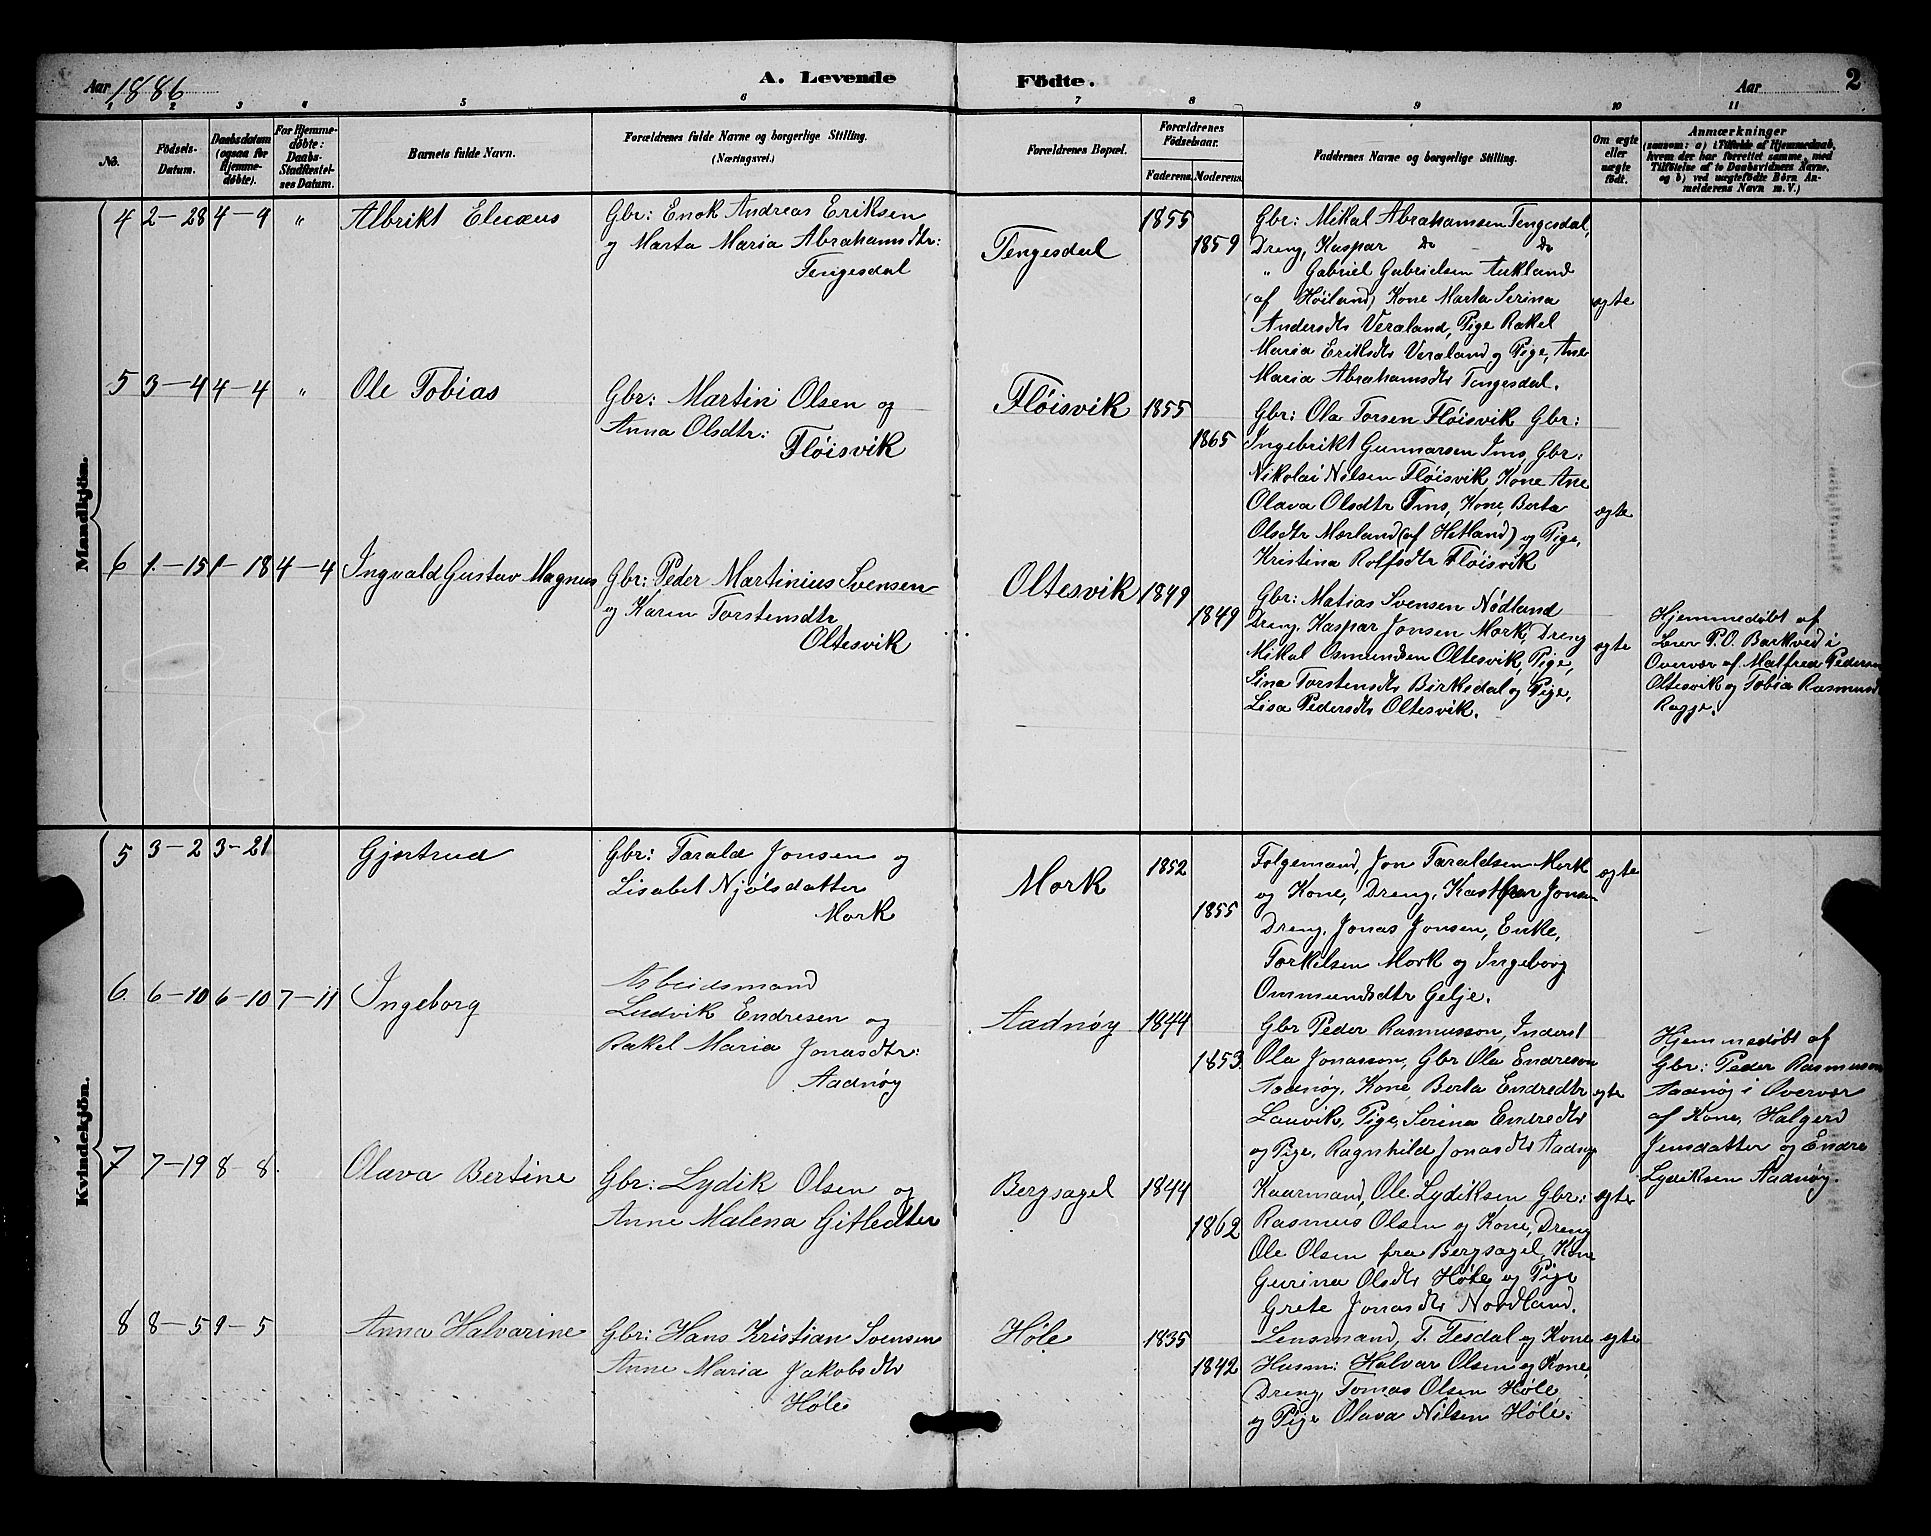 Aar 1886
A. Levende
Födte.
Aar
2
1 2 3 4 5 6 7 8 9 10 11
No.
Födsels-Datum.
Daabsdatum (ogsaa for Hjemme-døbte).
For Hjemme-døbte: Daabs-Stadfæstel-ses Datum.
Barnets fulde Navn.
Forældrenes fulde Navne og borgerlige Stilling.
(Næringsvei.)
Forældrenes Bopæl.
Forældrenes Fødselsaar.
Faderens. Moderens.
Faddernes Navne og borgerlige Stilling.
Om ægte eller uægte født.
Anmærkninger
(saasom: a) i Tilfælde af Hjemmedaab, hvem der har forrettet samme, med Tilføielse af to Daabsvidners Navne, og b) ved uægtefødte Børn An-melderens Navn m. V.)
Mandkjön.
4 2-28 4-9 "
Albrikt Elicæus
Gbr: Enok Andreas Eriksen
og Marta Maria Abrahamsdtr:
Tengesdal
Tengesdal
1855
1859
Gbr: Mikal Abrahamsen Tengesdal,
Dreng, Kaspar do - do
" Gabriel Gabrielsen Aukland
(af Høiland) Kone Marta Serina
Andersdtr Veraland, Pige Rakel
Maria Eriksdtr Veraland og Pige, Ane
Maria Abrahamsdtr Tengesdal.
ægte
5 3-4 4-4 "
Ole Tobias
Gbr: Martin Olsen og
Anna Olsdtr:
Fløisvik
Fløisvik
1855
1865
Gbr: Ola Torsen Fløisvik Gbr:
Ingebrikt Gunnarsen Ims, Gbr:
Nikolai Nilsen Fløisvik, Kone Ane
Olava Olsdtr Ims, Kone, Berta
Olsdtr Mærland (af Hetland) og Pige,
Kristina Rolfsdtr Fløisvik
ægte
6 1-15 1-18 4-4
Ingvald Gustav Magnus
Gbr: Peder Martinius Svensen
og Karen Torstensdtr
Oltesvik
Oltesvik
1849
1849
Gbr: Matias Svensen Nødland
Dreng, Kaspar Jonsen Mork, Dreng
Mikal Osmundsen Oltesvik, Pige,
Sina Torstensdtr Birkedal og Pige,
Lisa Pedersdtr Oltesvik.
ægte
Hjemmedøbt af
Lærer P.O. Barkved i
Overvær af Malfred Pedersen
Oltesvik og Tobia Rasmusd
Ragge.
Kvindekjön.
5 3-2 3-21
Gjertrud
Gbr: Tarald Jonsen og
Lisabet Njølsdatter
Mork
Mork
1852
1855
Følgemand, Jon Taraldsen Mork
og Kone, Dreng, Kaspar Jonsen
Dreng, Jonas Jonsen, Enke,
Torkelsen Mork og Ingeborg
Ommundsdtr Gelje.
ægte
6. 6-10 6-10 7-11
Ingeborg
Arbeidsmand
Ludvik Endresen og
Rakel Maria Jonasdtr:
Aadnøy
Aadnøy
1844
1853
Gbr Peder Rasmusson, Inderst
Ola Jonasson, Gbr Ola Endreson
Aadnøy, Kone, Berta Endredtr
Lauvik, Pige, Serina Endredtr
og Pige, Ragnhild Jonasdtr Aadnøy
ægte
Hjemmedøbt af
Gbr: Peder Rasmusson
Aadnøy i Overvær
af Kone, Halgerd
Jensdatter og Endre
Lydiksen Aadnøy.
7 7-19 8-8.
Olava Bertine
Gbr: Lydik Olsen og
Anne Malena Gitledtter
Bergsagel
1844
1862
Kaarmand, Ole Lydiksen Gbr:
Rasmus Olsen og Kone, Dreng
Ole Olsen fra Bergsagel, Kone
Gurina Olsdtr Høle og Pige
Grete Jonasdtr Nordland.
ægte
8 8-5 9-5
Anna Halvarine
Gbr: Hans Kristian Svensen
Anne Maria Jakobsdtr
Høle
Høle
1835
1842
Lensmand, T. Tesdal og Kone
Husm: Halvar Olsen og Kone,
Dreng, Tomas Olsen Høle
og Pige Olava Nilsen Høle.
ægte